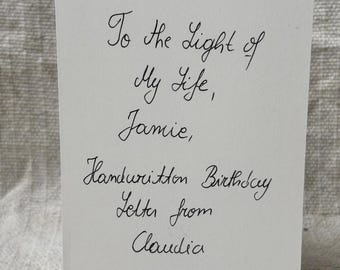 To the Light of
My Life,
Jamie,
Handwritten Birthday
Letter from
Claudia